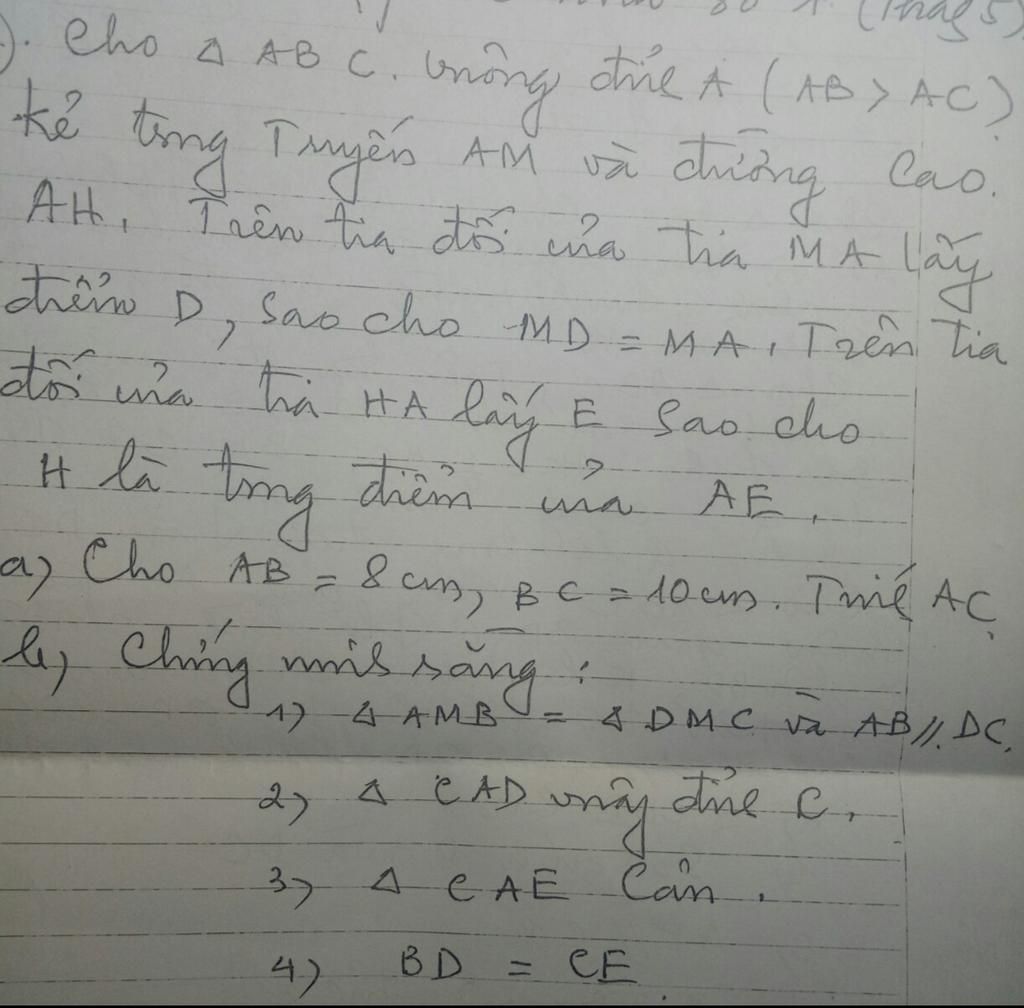 (Tháng 5)
). Cho Δ ABC. vuông đỉnh A (AB > AC)
kẻ trung Truyến AM và đường Cao.
AH, Trên tia đối của tia MA lấy
điểm D, Sao cho MD = MA, Trên tia
đối của tia HA lấy E Sao cho
H là trung điểm của AE.
a) Cho AB = 8 cm, BC = 10 cm. Tính AC.
b) Chứng minh rằng:
1) Δ AMB = Δ DMC và AB // DC.
2) Δ CAD vuông đỉnh C.
3) Δ CAE Cân.
4) BD = CE.